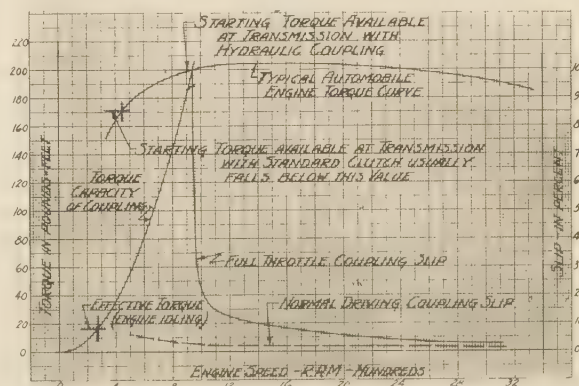 STARTING TORQUE AVAILABLE
AT TRANSMISSION WITH
HYDRAULIC COUPLING
TYPICAL AUTOMOBILE
ENGINE TORQUE CURVE
STARTING TORQUE AVAILABLE AT TRANSMISSION
WITH STANDARD CLUTCH USUALLY
FALLS BELOW THIS VALUE
TORQUE
CAPACITY
OF COUPLING
FULL THROTTLE COUPLING SLIP
EFFECTIVE TORQUE
(ENGINE IDLING)
NORMAL DRIVING COUPLING SLIP
TORQUE IN POUNDS-FEET
220
200
180
160
140
120
100
80
60
40
20
0
SLIP-IN PERCENT
0 4 8 12 16 20 24 28 32
ENGINE SPEED - R.P.M - HUNDREDS